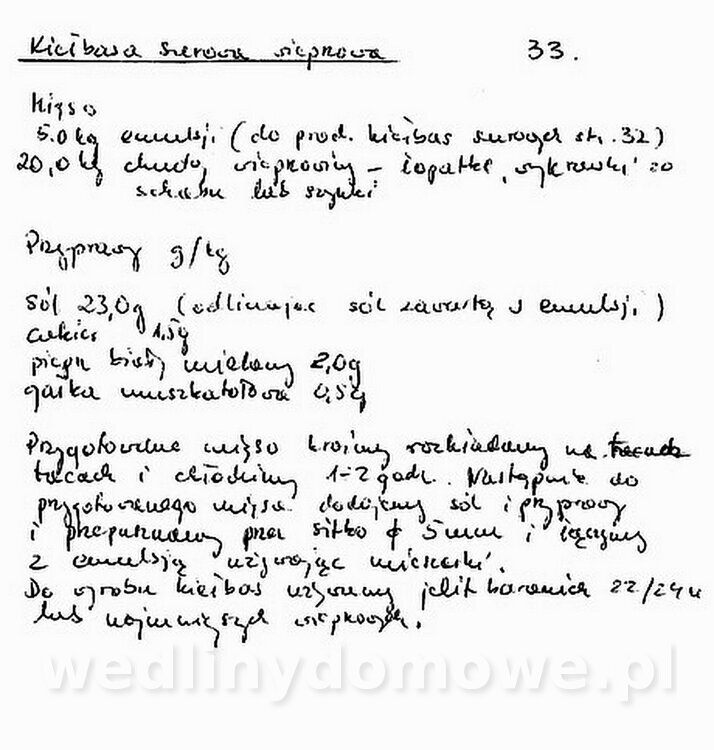 Kiełbasa surowa wieprzowa 33.
Mięso
5.0 kg emulsji (do prod. kiełbas surowych str. 32)
20,0 kg chudej wieprzowiny - łopatka, wykrawki ze
schabu lub szynki
Przyprawy g/kg
sól 23,0g (odliczając sól zawartą w emulsji)
cukier 1,5g
pieprz biały mielony 2,0g
gałka muszkatołowa 0,5g
Przygotowane mięso kroimy rozkładamy na tacach
tacach i chłodzimy 1-2 godz. Następnie do
przygotowanego mięsa dodajemy sól i przyprawy
i przepuszczamy przez sitko ϕ 5mm i łączymy
z emulsją używając mieszarki.
Do wyrobu kiełbas używamy jelit baranich 22/24
lub najmniejszych wieprzowych.
wedlinydomowe.pl